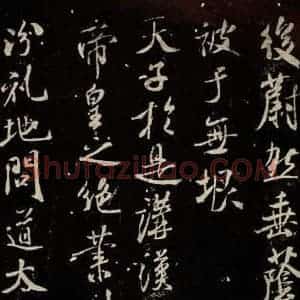 後蔚然垂蔭
被于無垠
天子於是講漢
帝皇之絶業
汾礼地問道太
Shufaziliao.COM